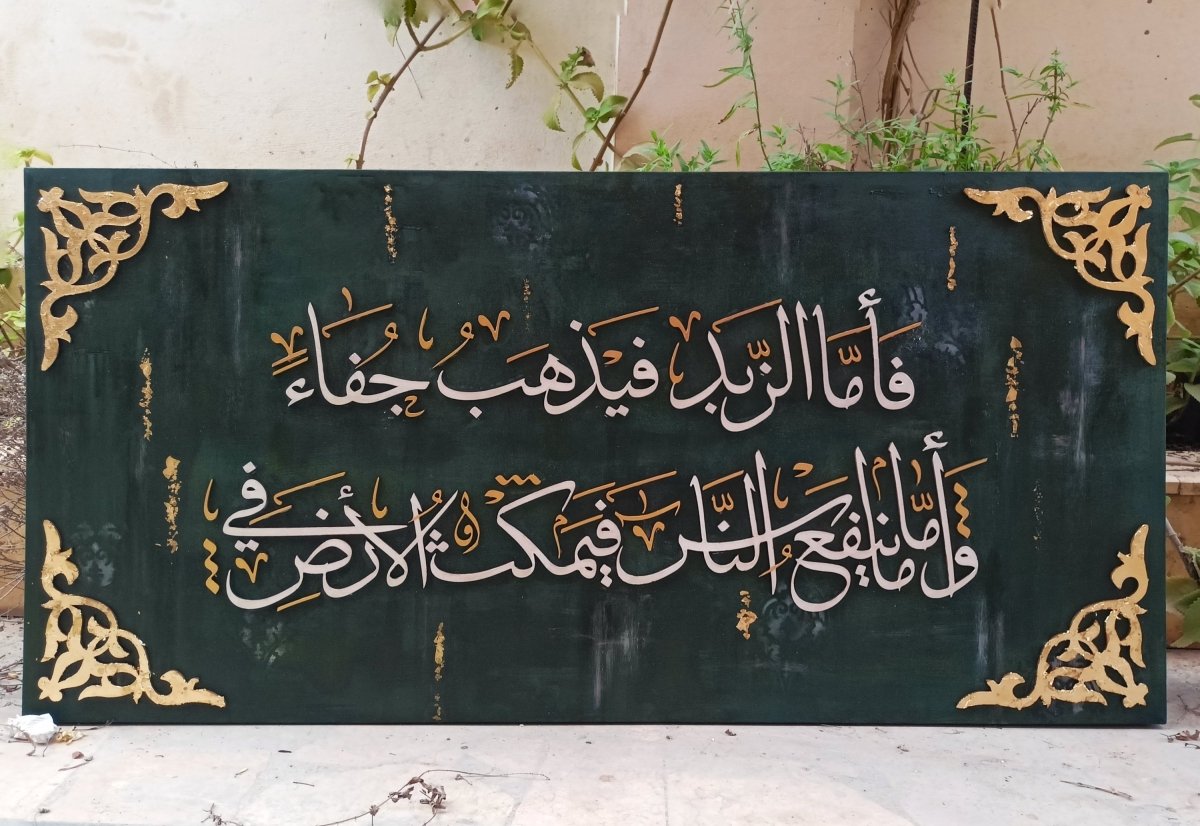 فَأَمَّا الزَّبَدُ فَيَذْهَبُ جُفَاءً
وَأَمَّا مَا يَنفَعُ النَّاسَ فَيَمْكُثُ فِي الْأَرْضِ